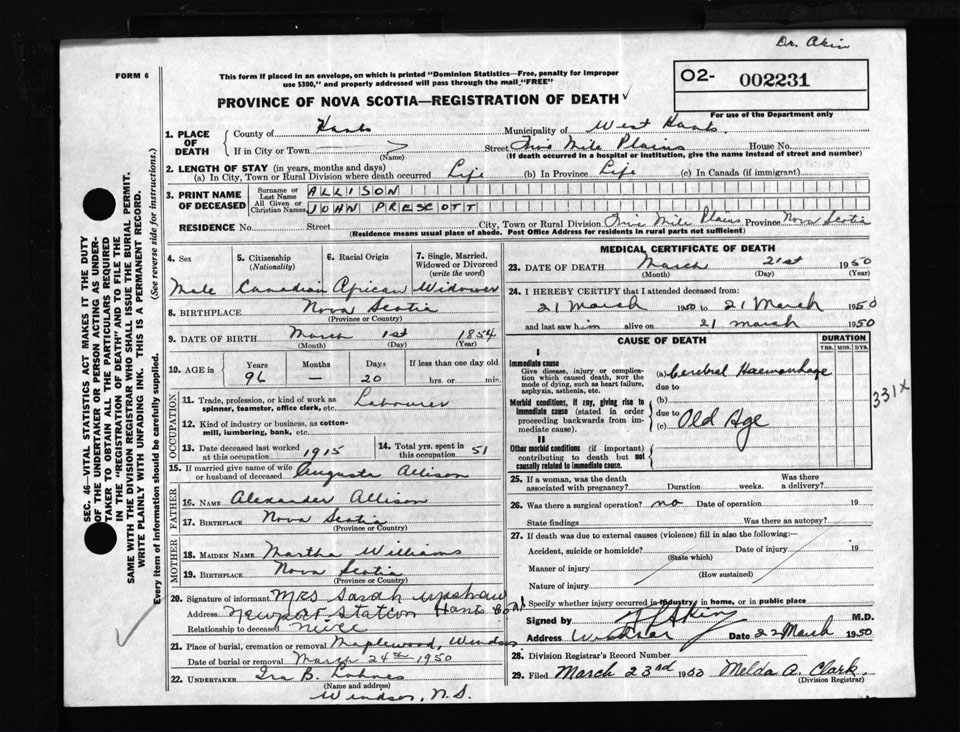 Dr. Akin
FORM 6
This form if placed in an envelope, on which is printed "Dominion Statistics—Free, penalty for improper
use $300," and properly addressed will pass through the mail "FREE"
O2- 002231
For use of the Department only
PROVINCE OF NOVA SCOTIA—REGISTRATION OF DEATH ✓
SEC. 46—VITAL STATISTICS ACT MAKES IT THE DUTY
OF THE UNDERTAKER OR PERSON ACTING AS UNDER-
TAKER TO OBTAIN ALL THE PARTICULARS REQUIRED
IN THE "REGISTRATION OF DEATH" AND TO FILE THE
SAME WITH THE DIVISION REGISTRAR WHO SHALL ISSUE THE BURIAL PERMIT.
WRITE PLAINLY WITH UNFADING INK. THIS IS A PERMANENT RECORD.
Every item of information should be carefully supplied. (See reverse side for instructions.)
1. PLACE OF DEATH
County of Hants Municipality of West Hants
If in City or Town (Name) Street Five Mile Plains House No.
(If death occurred in a hospital or institution, give the name instead of street and number)
2. LENGTH OF STAY (in years, months and days)
(a) In City, Town or Rural Division where death occurred Life (b) In Province Life (c) In Canada (if immigrant)
3. PRINT NAME OF DECEASED
Surname or Last Name ALLISON
All Given or Christian Names JOHN PRESCOTT
RESIDENCE No. Street City, Town or Rural Division Five Mile Plains Province Nova Scotia
(Residence means usual place of abode. Post Office Address for residents in rural parts not sufficient)
4. Sex 5. Citizenship (Nationality) 6. Racial Origin 7. Single, Married, Widowed or Divorced (write the word)
Male Canadian African Widower
8. BIRTHPLACE Nova Scotia
(Province or Country)
9. DATE OF BIRTH March 1st 1854
(Month) (Day) (Year)
10. AGE in Years Months Days If less than one day old
96 — 20 hrs. or min.
OCCUPATION
11. Trade, profession, or kind of work as
spinner, teamster, office clerk, etc. Labourer
12. Kind of industry or business, as cotton-
mill, lumbering, bank, etc.
13. Date deceased last worked at this occupation 1915 14. Total yrs. spent in this occupation 51
15. If married give name of wife or husband of deceased Auguste Allison
FATHER
16. NAME Alexander Allison
17. BIRTHPLACE Nova Scotia
(Province or Country)
MOTHER
18. MAIDEN NAME Martha Williams
19. BIRTHPLACE Nova Scotia
(Province or Country)
20. Signature of informant MRS Sarah Upshaw
Address Newport Station Hants Co
Relationship to deceased niece
21. Place of burial, cremation or removal Maplewood, Windsor
Date of burial or removal March 24th 1950
22. UNDERTAKER Ira B. Lohnes
(Name and address)
Windsor, N.S.
MEDICAL CERTIFICATE OF DEATH
23. DATE OF DEATH March 21st 1950
(Month) (Day) (Year)
24. I HEREBY CERTIFY that I attended deceased from:
21 March 1950 to 21 March 1950
and last saw him alive on 21 march 1950
CAUSE OF DEATH
DURATION
YRS. MOS. DYS.
I
Immediate cause
Give disease, injury or complica-
tion which caused death, not the
mode of dying, such as heart failure,
asphyxia, asthenia, etc.
(a) Cerebral Haemorrhage
due to
Morbid conditions, if any, giving rise to
immediate cause (stated in order
proceeding backwards from im-
mediate cause).
(b)
due to
(c) Old Age
331X
II
Other morbid conditions (if important)
contributing to death but not
causally related to immediate cause.
25. If a woman, was the death associated with pregnancy? Duration weeks. Was there a delivery?
26. Was there a surgical operation? no Date of operation 19
State findings Was there an autopsy?
27. If death was due to external causes (violence) fill in also the following:—
Accident, suicide or homicide? Date of injury 19
(State which)
Manner of injury (How sustained)
Nature of injury
Specify whether injury occurred in industry, in home, or in public place
Signed by Akin M.D.
Address Windsor Date 22 March 1950
28. Division Registrar's Record Number
29. Filed March 23rd 1950 Melda A. Clark
(Division Registrar)